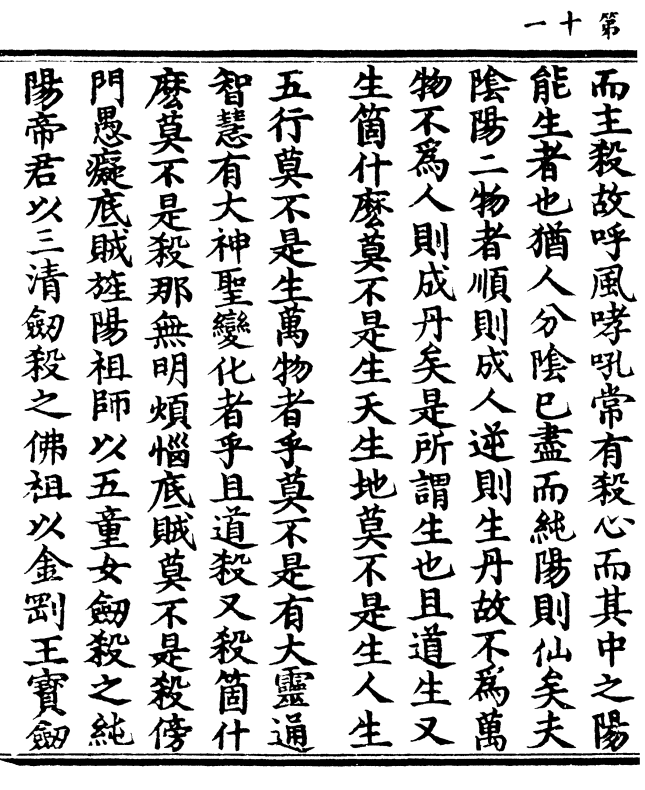 第十一
而主殺故呼風哮吼常有殺心而其中之陽
能生者也猶人分陰已盡而純陽則仙矣夫
陰陽二物者順則成人逆則生丹故不為萬
物不為人則成丹矣是所謂生也且道生又
生箇什麼莫不是生天生地莫不是生人生
五行莫不是生萬物者乎莫不是有大靈通
智慧有大神聖變化者乎且道殺又殺箇什
麼莫不是殺那無明煩惱底賊莫不是殺傍
門愚癡底賊旌陽祖師以五童女劒殺之純
陽帝君以三清劒殺之佛祖以金剛王寶劒